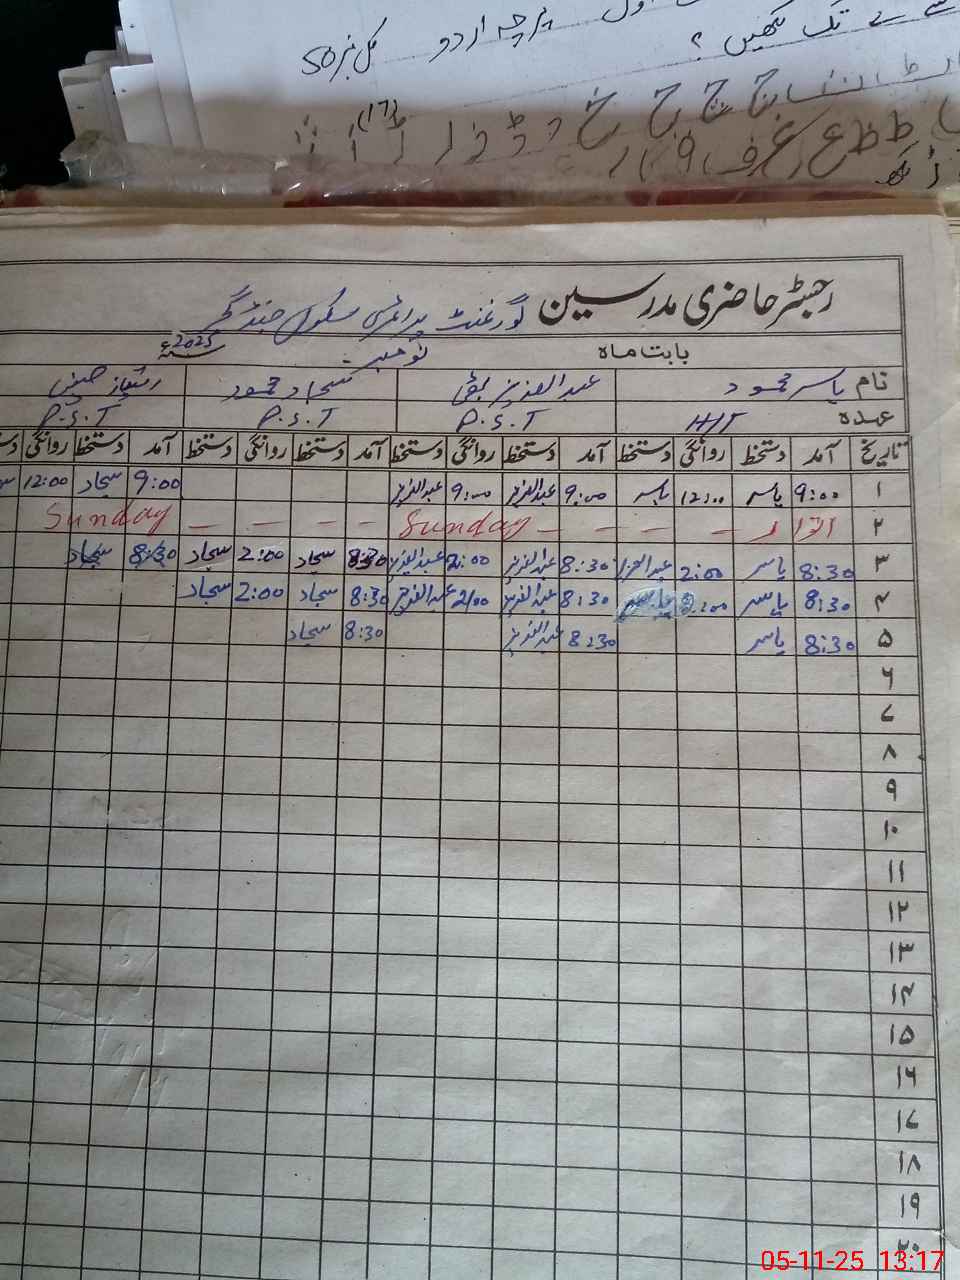 پرچہ اردو کل نمبر 50
تک لکھیں ؟
(17)
رجسٹر حاضری مدرسین گورنمنٹ پرائمری سکول
بابت ماہ نومبر سنہ 2025ء
نام یاسر محمود عبدالعزیز سجاد محمود
عہدہ P.S.T P.S.T P.S.T
تاریخ آمد دستخط روانگی دستخط آمد دستخط روانگی دستخط آمد دستخط روانگی دستخط آمد دستخط روانگی
۱ 9:00 یاسر 12:00 یاسر 9:00 عبدالعزیز 9:00 عبدالعزیز 9:00 سجاد 12:00
۲ اتوار Sunday Sunday
۳ 8:30 یاسر 2:00 عبدالعزیز 8:30 عبدالعزیز 2:00 عبدالعزیز 8:30 سجاد 2:00 سجاد 8:30 سجاد
۴ 8:30 یاسر 8:30 عبدالعزیز 2:00 عبدالعزیز 8:30 سجاد 2:00 سجاد
۵ 8:30 یاسر 8:30 عبدالعزیز 8:30 سجاد
۶
۷
۸
۹
۱۰
۱۱
۱۲
۱۳
۱۴
۱۵
۱۶
۱۷
۱۸
۱۹
۲۰
05-11-25 13:17